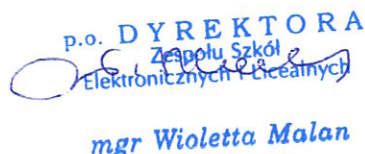 p.o. DYREKTORA
Zespołu Szkół
Elektronicznych i Licealnych
mgr Wioletta Malan